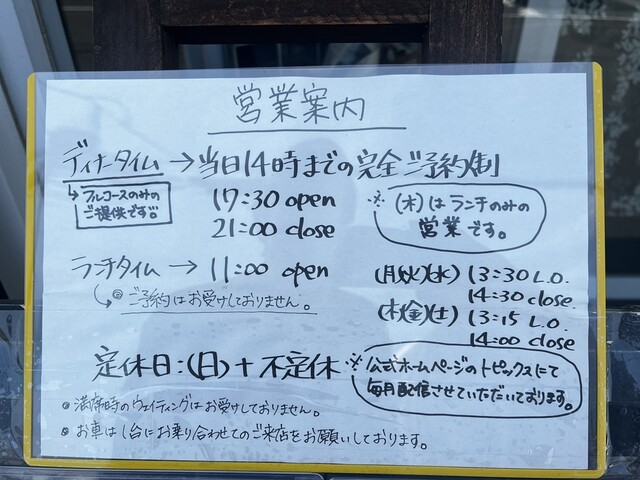 営業案内
ディナータイム→当日14時までの完全ご予約制
↳フルコースのみの
ご提供です。
17:30 open
21:00 close
※(木)はランチのみの
営業です。
ランチタイム→11:00 open
↳◎ご予約はお受けしておりません。
(月)(火)(水) 13:30 L.O.
14:30 close
(木)(金)(土) 13:15 L.O.
14:00 close
定休日:(日)+不定休
※公式ホームページのトピックスにて
毎月配信させていただいております。
◎満席時のウェイティングはお受けしておりません。
◎お車は1台にお乗り合わせてのご来店をお願いしております。